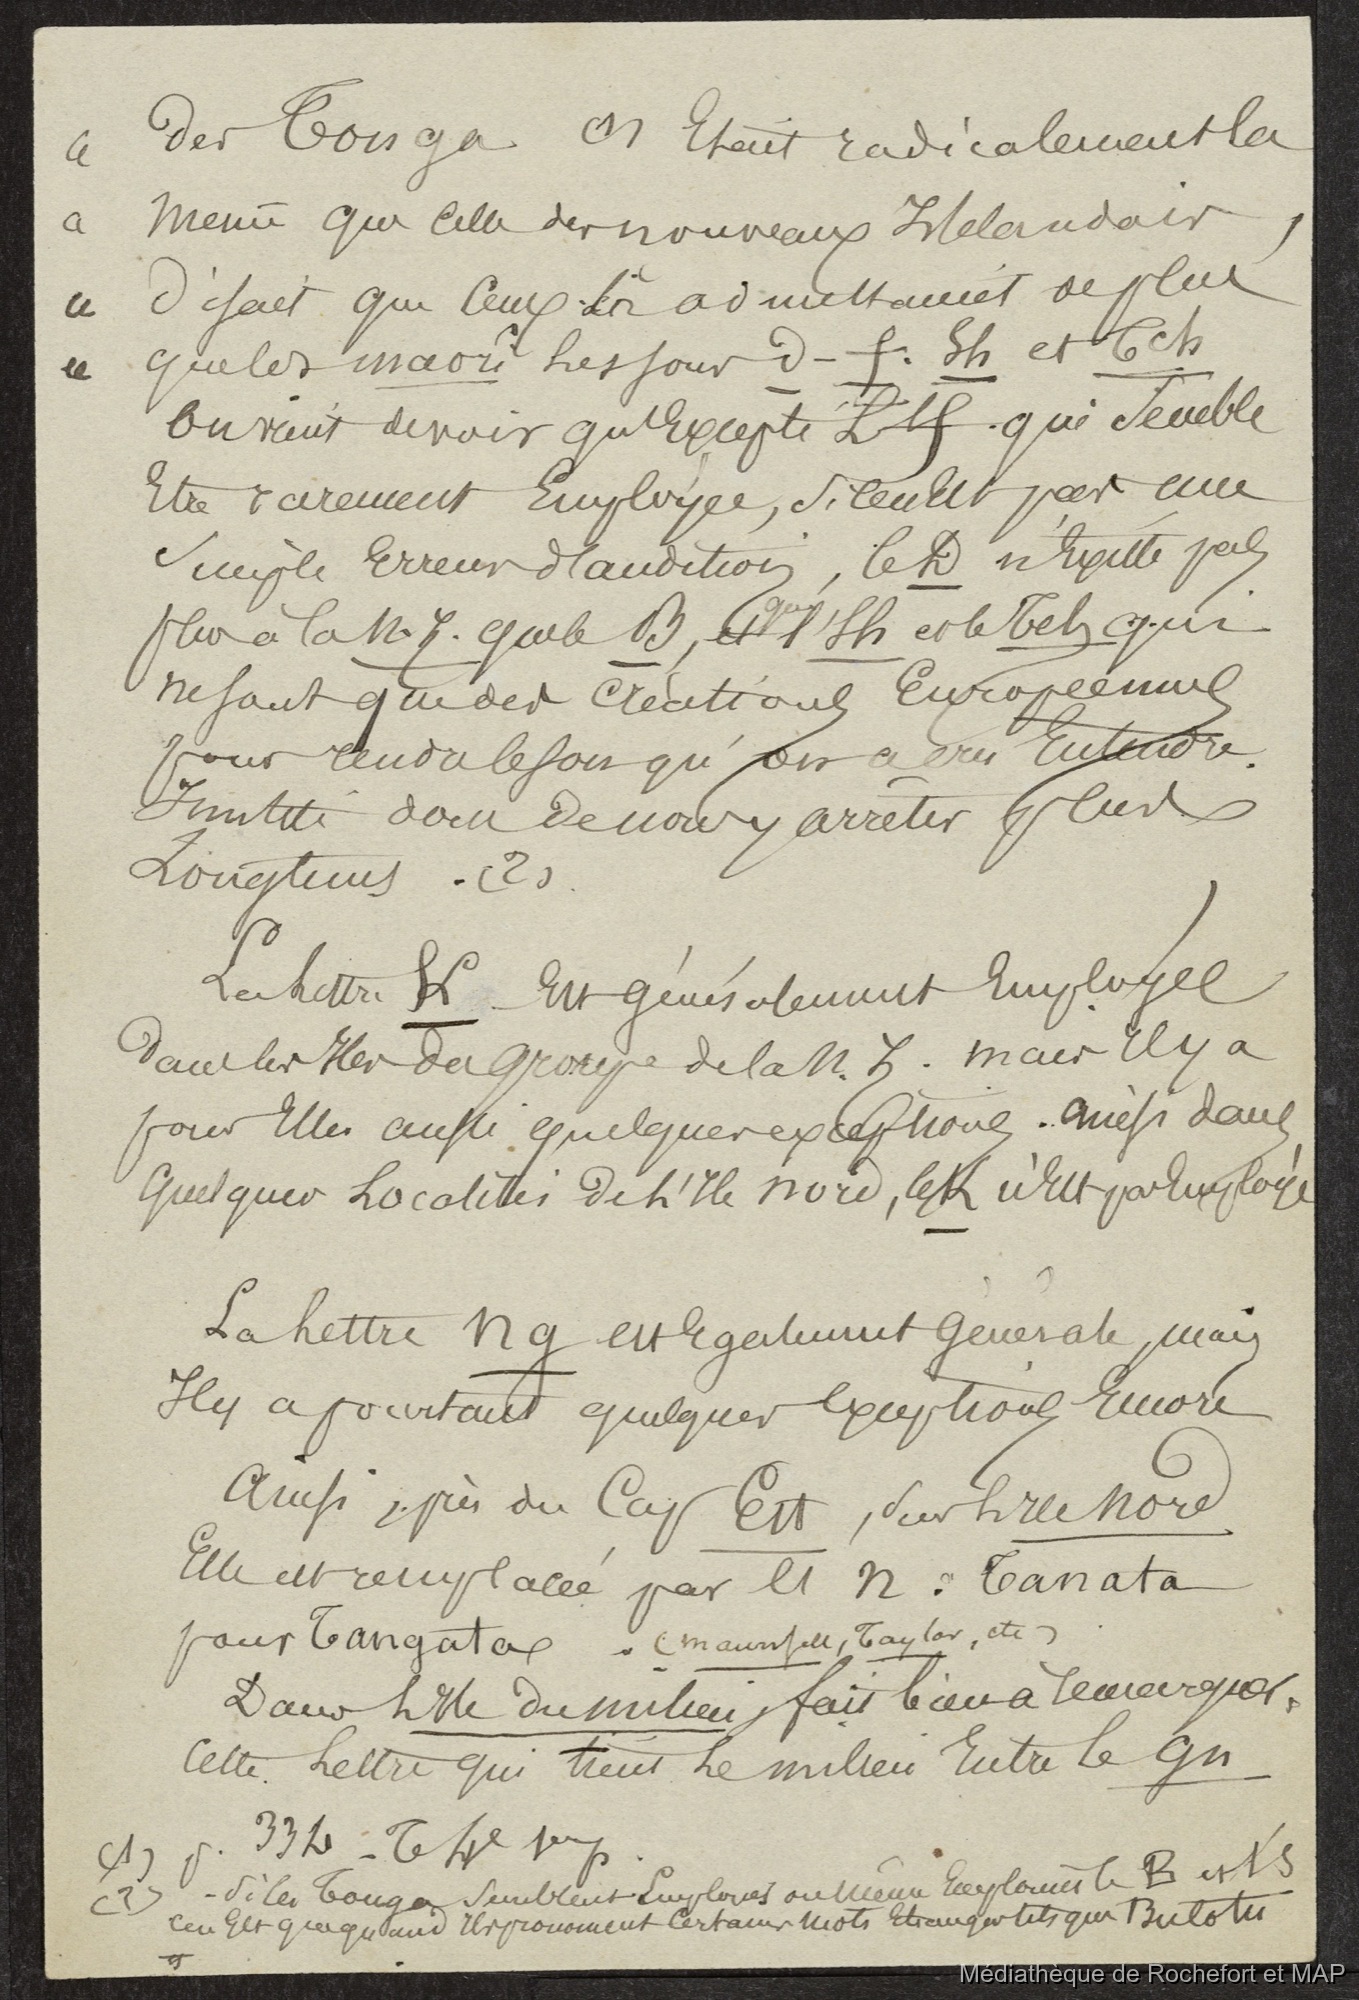 « des Tonga (1) était radicalement la
« même que celle des nouveaux Zélandais,
« disait que ceux-là admettaient de plus
« que les maori les sons d - f. Sh et Tch
On vient de voir qu'excepté L'f. qui semble
Etre rarement Employée, si ce n'est par une
simple Erreur d'audition, le D n'Existe pas
plus à la N. Z. que le B, que l'Sh et le Tch qui
ne sont que des Créations Européennes
pour rendre le son qu'on a cru Entendre.
Inutile donc de nous y arrêter plus
Longtems. (2)
La Lettre K Est généralement Employée
Dans les Iles du groupe de la N. Z. mais Il y a
pour Elles aussi quelques exceptions. ainsi dans
quelques Localités de L'Ile nord, le K n'Est pas Employé
La Lettre ng est Egalement générale, mais
Il y a pourtant quelques Exceptions Encore
Ainsi, près du Cap Est, sur L'Ile nord
Elle est remplacée par N : Tanata
pour Tangata. (Maunsell, Taylor, etc)
Dans L'Ile du milieu, fait bien à remarquer,
Cette Lettre qui tient Le milieu Entre Le gn
(1) p. 332
(2) - Si les Tonga semblent Employer ou même Employent le B et l'S
c'en Est que quand Ils prononcent Certains Mots Etrangers tels que Bulotu